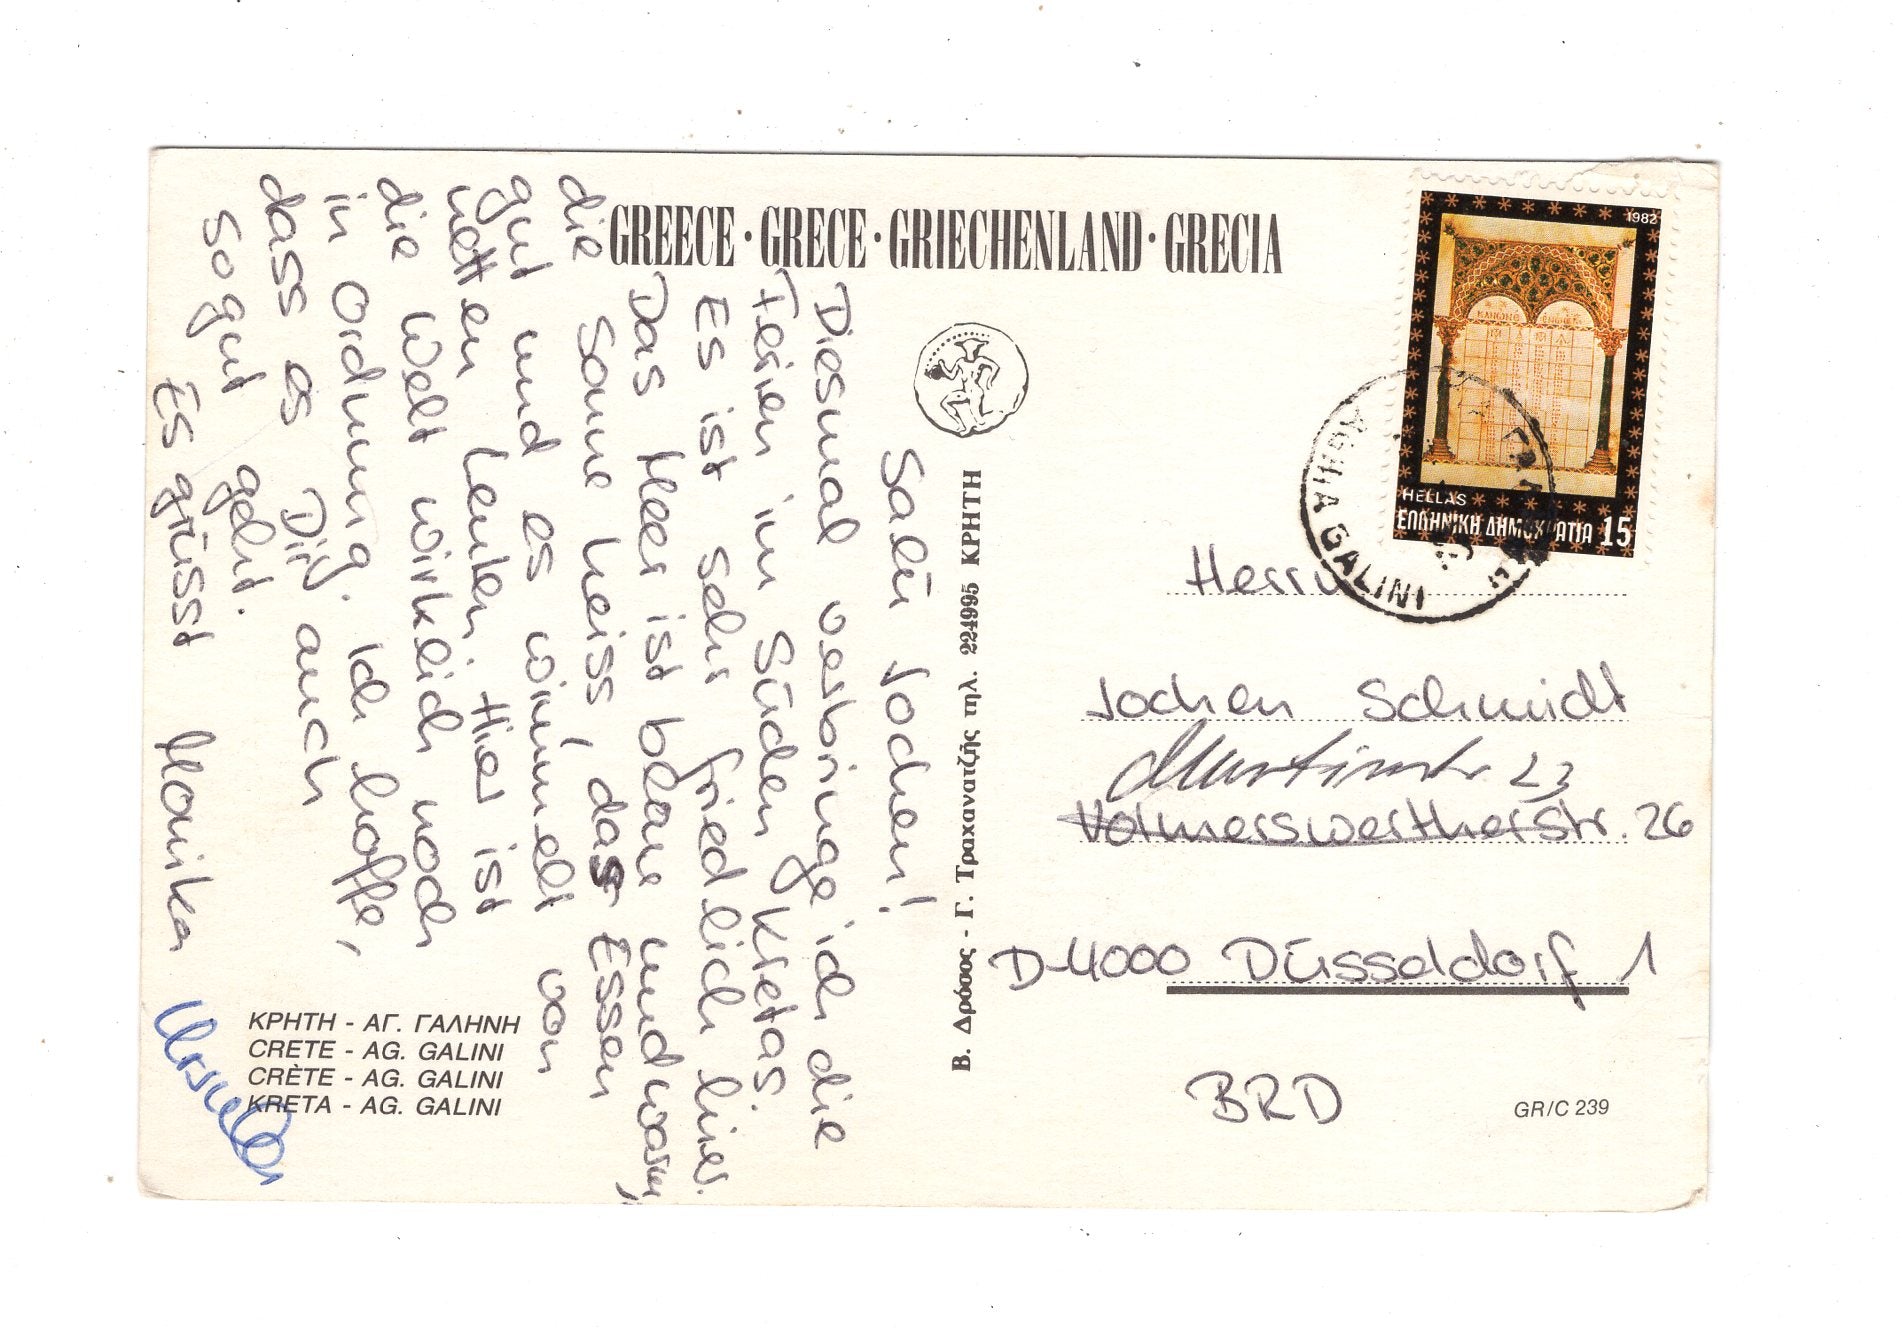 GREECE · GRECE · GRIECHENLAND · GRECIA
Salü Jochen!
Diesmal verbringe ich die
Ferien im Süden Kretas.
Es ist sehr friedlich hier.
Das Meer ist blau und warm,
die Sonne heiss, das Essen
gut und es wimmelt von
netten Leuten. Hier ist
die Welt wirklich noch
in Ordnung. Ich hoffe,
dass es Dir auch
so gut geht.
Es grüsst Monika
Ursula
ΚΡΗΤΗ - ΑΓ. ΓΑΛΗΝΗ
CRETE - AG. GALINI
CRÈTE - AG. GALINI
KRETA - AG. GALINI
Β. Δρόσος - Γ. Τραχανατζής τηλ. 224995 ΚΡΗΤΗ
1982
HELLAS
ΕΛΛΗΝΙΚΗ ΔΗΜΟΚΡΑΤΙΑ 15
AGHIA GALINI
Herrn
Jochen Schmidt
Martinstr. 23
Volmerswertherstr. 26
D-4000 Düsseldorf 1
BRD
GR/C 239